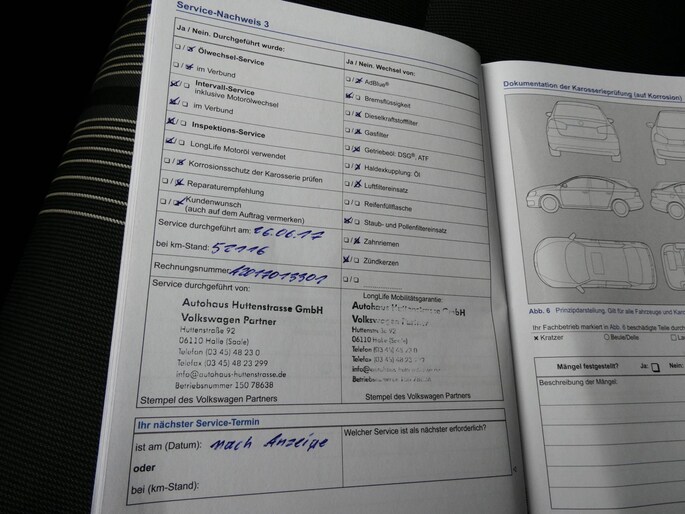 Service-Nachweis 3
Ja / Nein. Durchgeführt wurde:
Ölwechsel-Service
im Verbund
Intervall-Service
inklusive Motorölwechsel
im Verbund
Inspektions-Service
LongLife Motoröl verwendet
Korrosionsschutz der Karosserie prüfen
Reparaturempfehlung
Kundenwunsch
(auch auf dem Auftrag vermerken)
Service durchgeführt am: 26.06.17
bei km-Stand: 52116
Rechnungsnummer:
Service durchgeführt von:
Autohaus Huttenstrasse GmbH
Volkswagen Partner
Huttenstraße 92
06110 Halle (Saale)
Telefon (03 45) 48 23 0
Telefax (03 45) 48 23 299
info@autohaus-huttenstrasse.de
Betriebsnummer 150 78638
Stempel des Volkswagen Partners
Ja / Nein. Wechsel von:
AdBlue®
Bremsflüssigkeit
Dieselkraftstofffilter
Gasfilter
Getriebeöl: DSG®, ATF
Haldexkupplung: Öl
Luftfiltereinsatz
Reifenfüllflasche
Staub- und Pollenfiltereinsatz
Zahnriemen
Zündkerzen
LongLife Mobilitätsgarantie:
Autohaus Huttenstrasse GmbH
Volkswagen Partner
06110 Halle (Saale)
Stempel des Volkswagen Partners
Ihr nächster Service-Termin
ist am (Datum): nach Anzeige
oder
bei (km-Stand):
Welcher Service ist als nächster erforderlich?
Dokumentation der Karosserieprüfung (auf Korrosion)
Abb. 6 Prinzipdarstellung. Gilt für alle Fahrzeuge und
Ihr Fachbetrieb markiert in Abb. 6 beschädigte Teile durch
Kratzer Beule/Delle
Mängel festgestellt? Ja: Nein:
Beschreibung der Mängel: